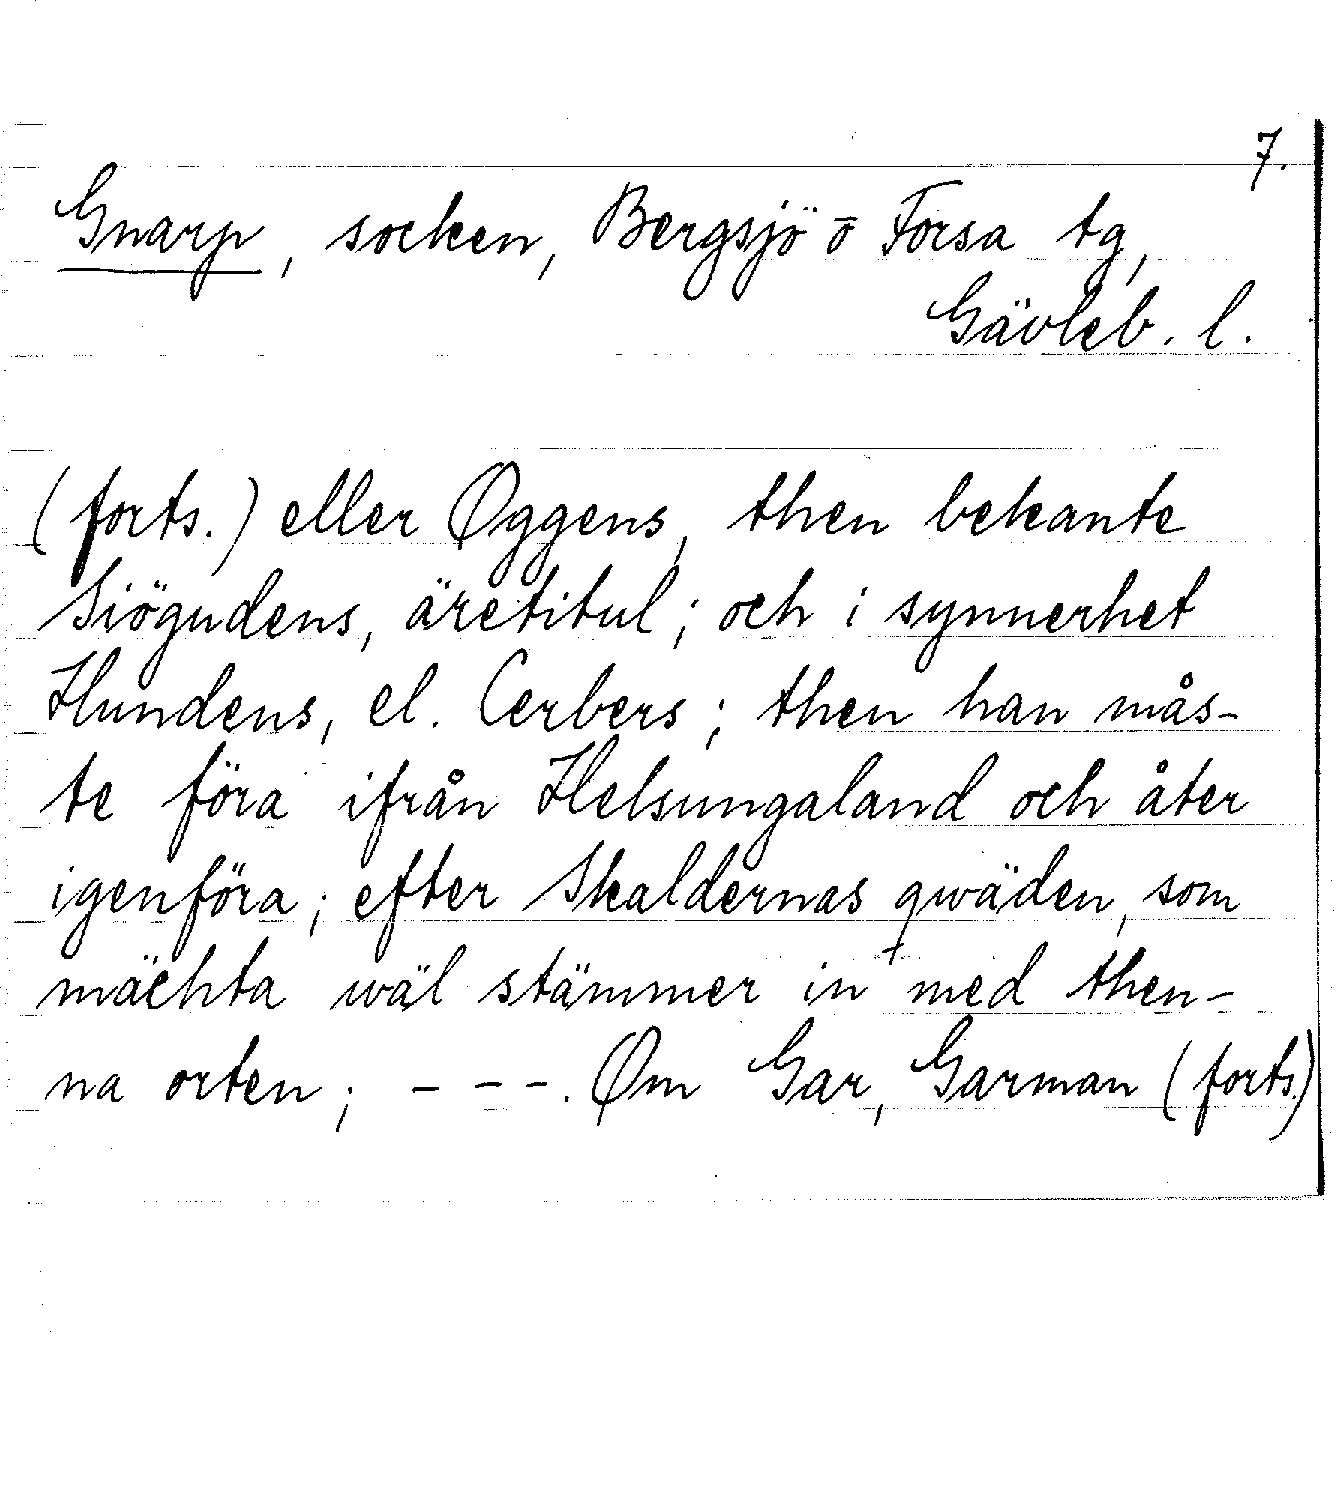 7.
Gnarp, socken, Bergsjö o Forsa tg,
Gävleb. l.
(forts.) eller Oggens, then bekante
Siögudens, äretitul; och i synnerhet
Hundens, el. Cerbers; then han mås-
te föra ifrån Helsungaland och åter
igenföra; efter Skaldernas qwäden, som
mächta wäl stämmer in med then-
na orten; - - - . Om Gar, Garman (forts.)